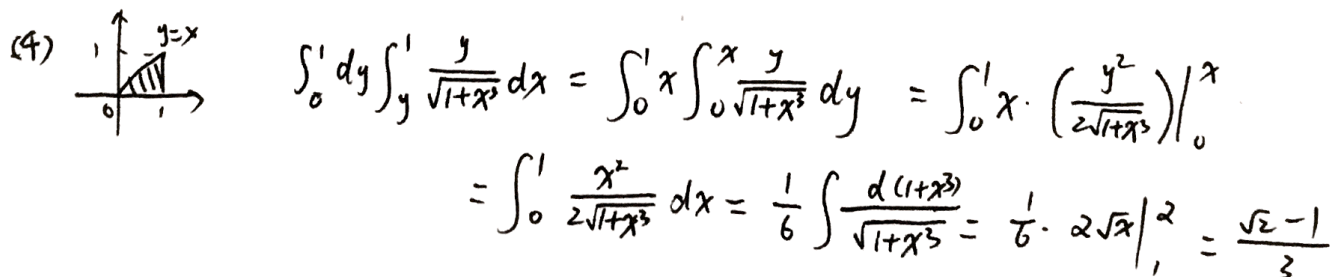 (4) 1 y=x 0 1 ∫₀¹ dy ∫_y^1 y/√(1+x³) dx = ∫₀¹ x ∫₀ˣ y/√(1+x³) dy = ∫₀¹ x · (y²/(2√(1+x³)))|₀ˣ
= ∫₀¹ x²/(2√(1+x³)) dx = 1/6 ∫ d(1+x³)/√(1+x³) = 1/6 · 2√x|₁² = (√2 - 1)/3